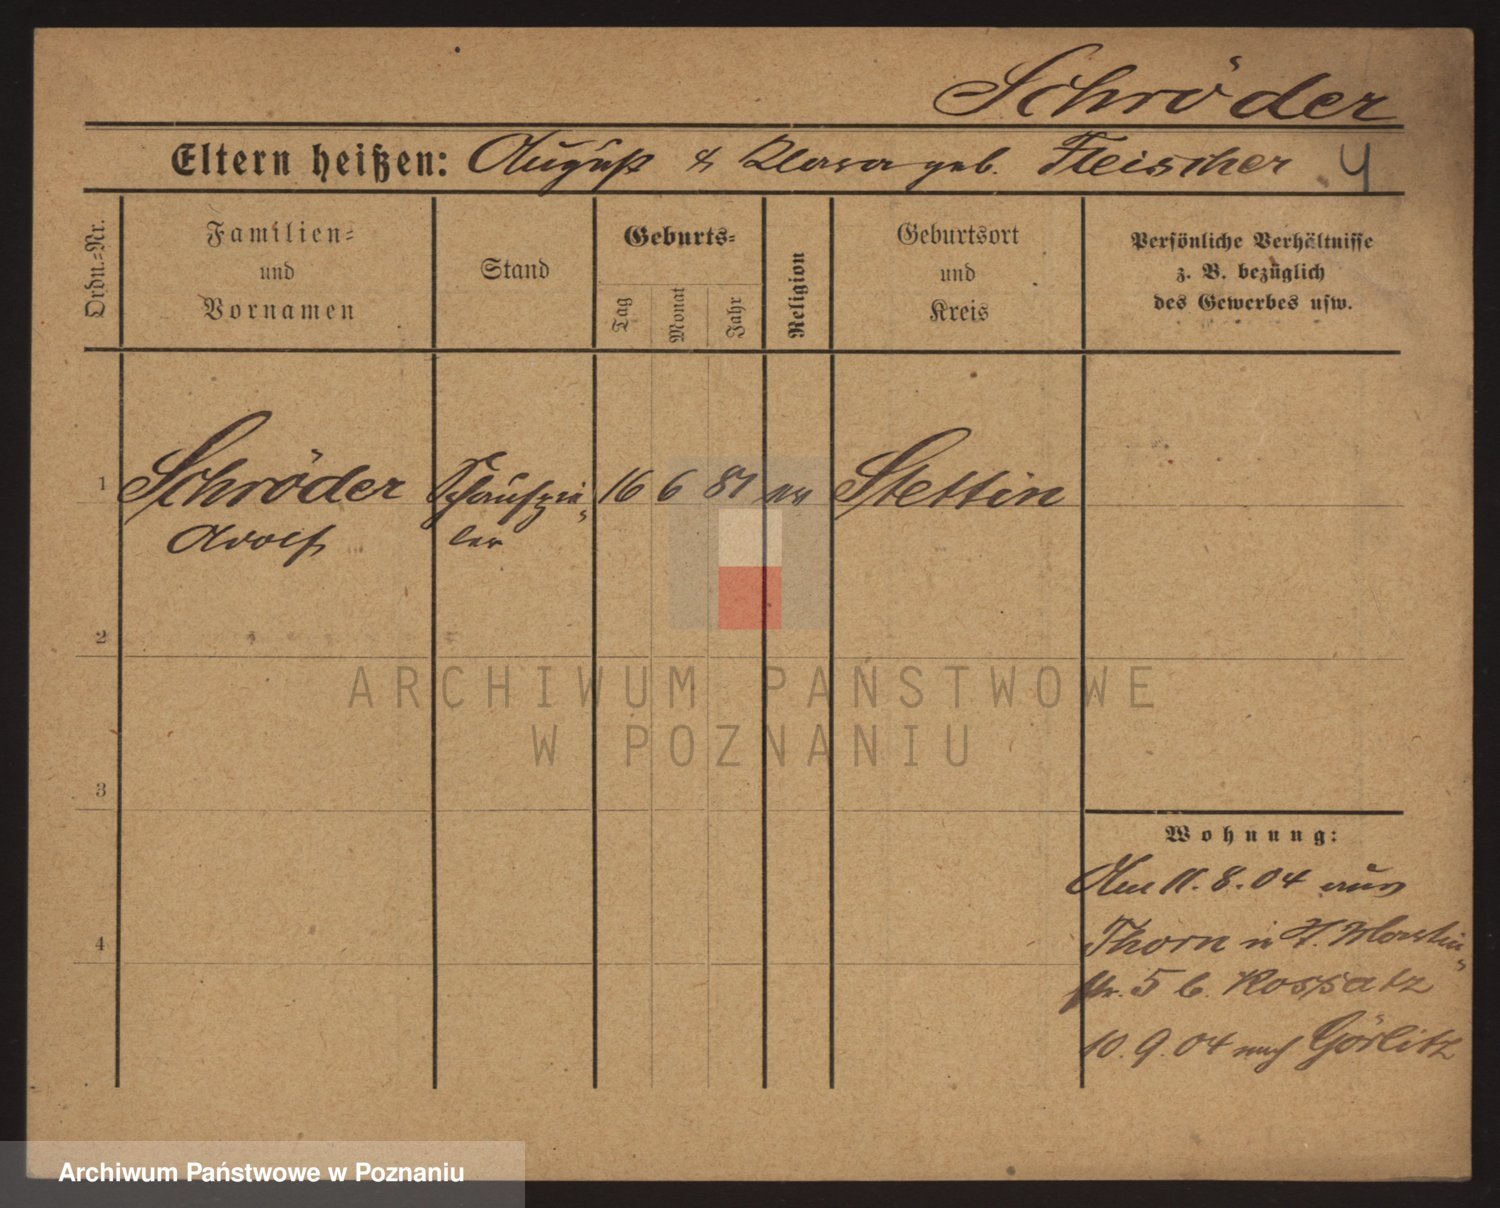 Schröder
Eltern heißen: August & Klara geb. Fleischer 4
Ordn.-Nr.
Familien-
und
Vornamen
Stand
Geburts-
Tag
Monat
Jahr
Religion
Geburtsort
und
Kreis
Persönliche Verhältnisse
z. B. bezüglich
des Gewerbes usw.
1 Schröder Schauspie- 16 6 81 ev Stettin
Adolf ler
2
3
4
Wohnung:
Am 11.8.04 aus
Thorn in St. Martin-
str. 5 b. Kossatz
10.9.04 nach Görlitz
ARCHIWUM PAŃSTWOWE
W POZNANIU
Archiwum Państwowe w Poznaniu